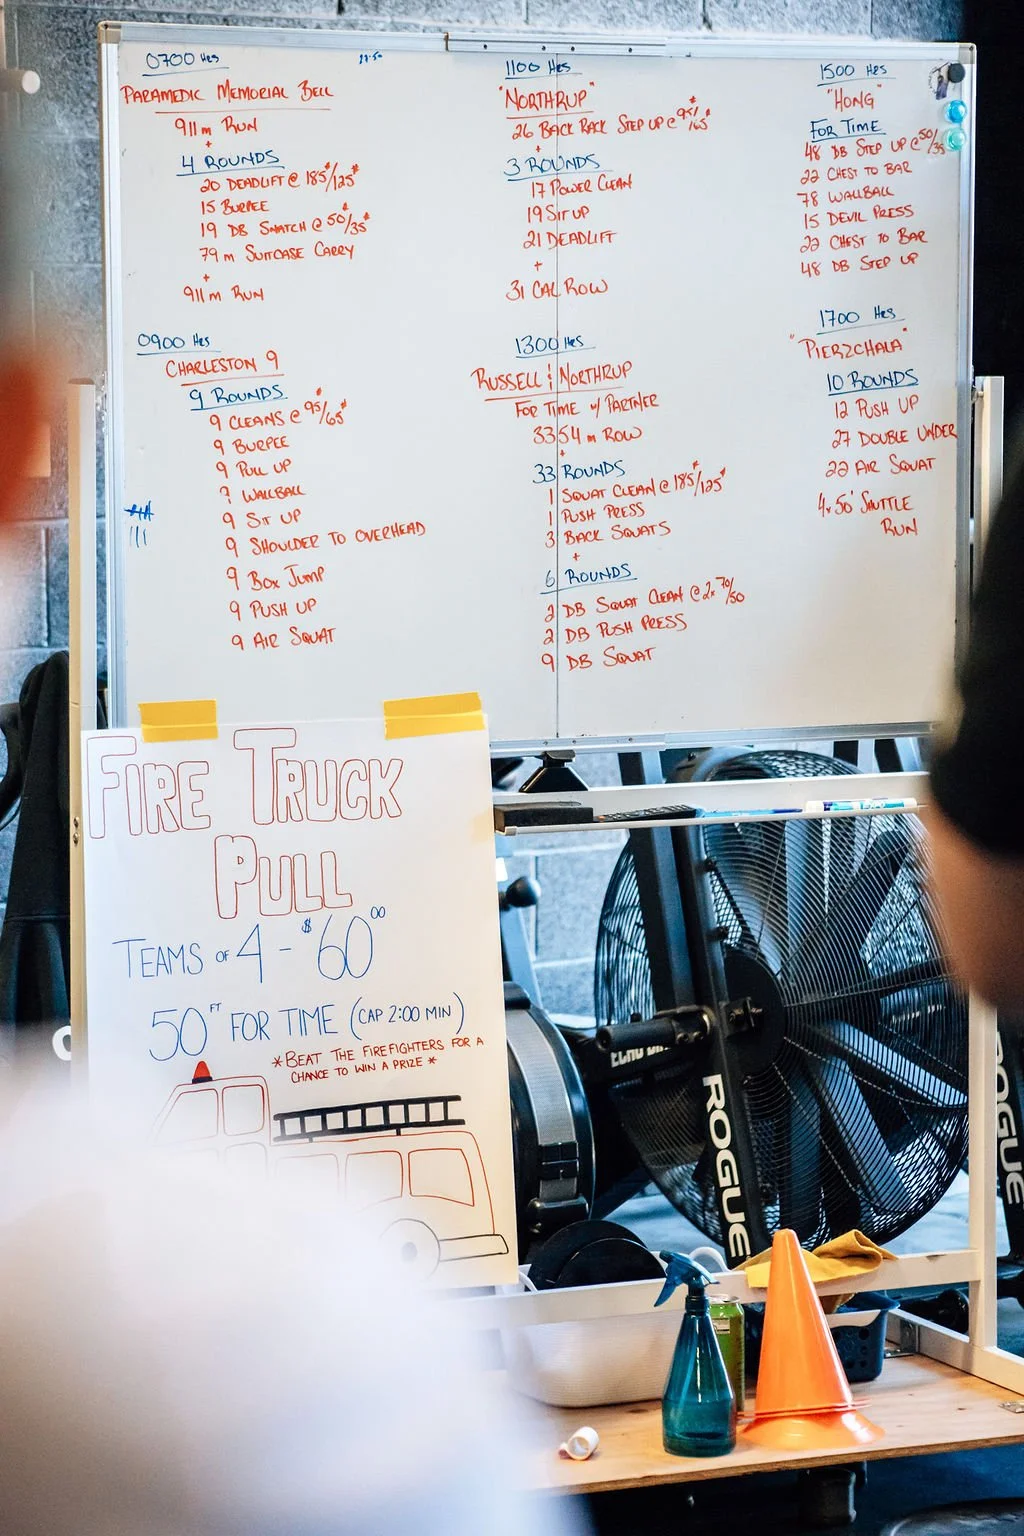 0700 Hrs
PARAMEDIC MEMORIAL BELL
911 m RUN
+
4 ROUNDS
20 DEADLIFT @ 185#/125#
15 BURPEE
19 DB SNATCH @ 50#/35#
79 m SUITCASE CARRY
+
911 m RUN
0900 Hrs
CHARLESTON 9
9 ROUNDS
9 CLEANS @ 95#/65#
9 BURPEE
9 PULL UP
9 WALLBALL
9 SIT UP
9 SHOULDER TO OVERHEAD
9 BOX JUMP
9 PUSH UP
9 AIR SQUAT
1100 Hrs
"NORTHRUP"
26 BACK RACK STEP UP @ 95#/65#
+
3 ROUNDS
17 POWER CLEAN
19 SIT UP
21 DEADLIFT
+
31 CAL ROW
1300 Hrs
RUSSELL & NORTHRUP
FOR TIME w/ PARTNER
3354 m ROW
+
33 ROUNDS
1 SQUAT CLEAN @ 185#/125#
1 PUSH PRESS
3 BACK SQUATS
+
6 ROUNDS
2 DB SQUAT CLEAN @ 2x 70/50
2 DB PUSH PRESS
9 DB SQUAT
1500 Hrs
"HONG"
FOR TIME
48 DB STEP UP @ 50/35
22 CHEST TO BAR
78 WALLBALL
15 DEVIL PRESS
22 CHEST TO BAR
48 DB STEP UP
1700 Hrs
"PIERZCHALA"
10 ROUNDS
12 PUSH UP
27 DOUBLE UNDER
22 AIR SQUAT
4x50' SHUTTLE
RUN
FIRE TRUCK
PULL
TEAMS OF 4 - $60.00
50 FT FOR TIME (CAP 2:00 MIN)
*BEAT THE FIREFIGHTERS FOR A
CHANCE TO WIN A PRIZE *
ECHO
ROGUE
ROGUE